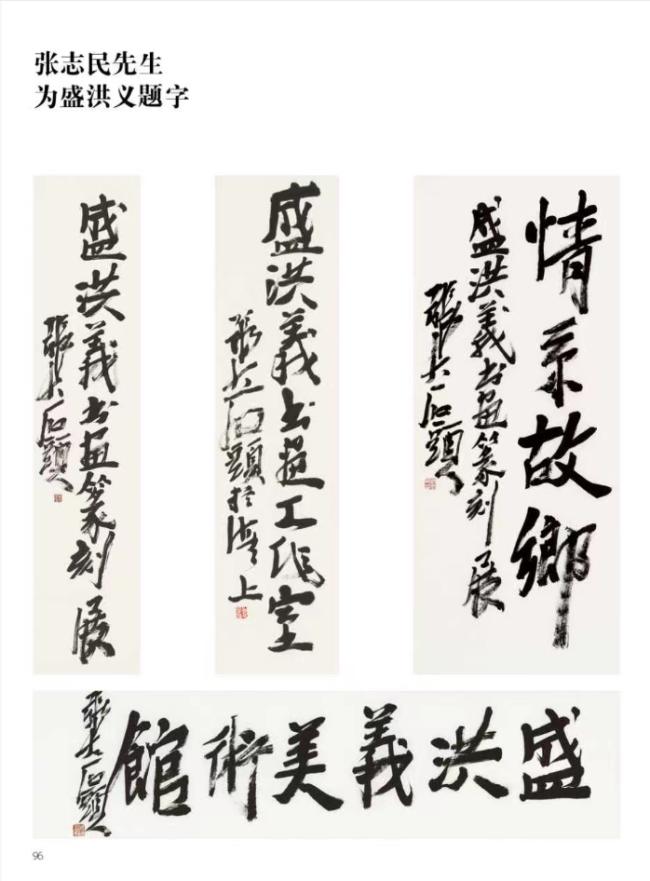 张志民先生
为盛洪义题字
盛洪義书画篆刻展
張大石頭
盛洪義书画工作室
張大石頭於济上
情系故鄉
盛洪義书画篆刻展
張大石頭
盛洪義美術館
張大石頭
96